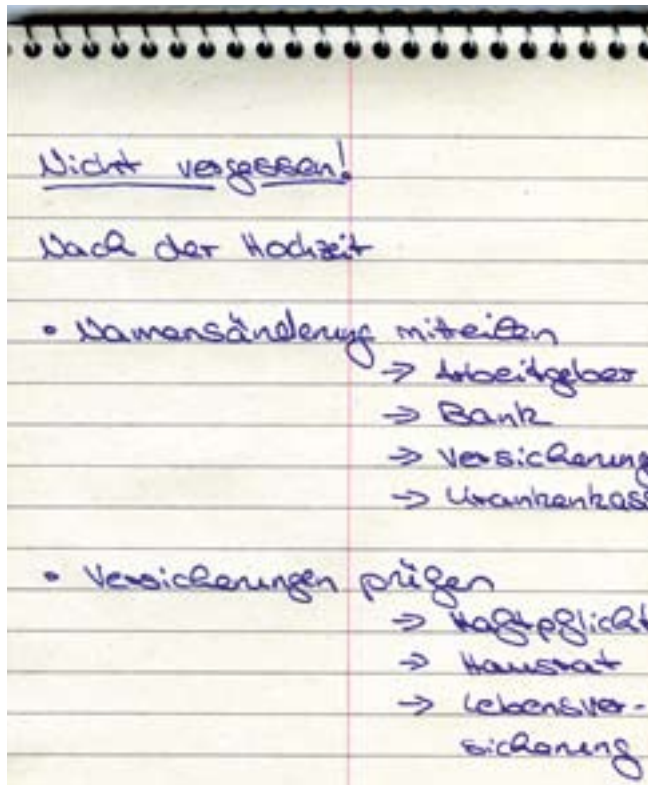 Nicht vergessen!
Nach der Hochzeit
• Namensänderung mitteilen
→ Arbeitgeber
→ Bank
→ Versicherung
→ Krankenkass
• Versicherungen prüfen
→ Haftpflicht
→ Hausrat
→ Lebensver-
sicherung